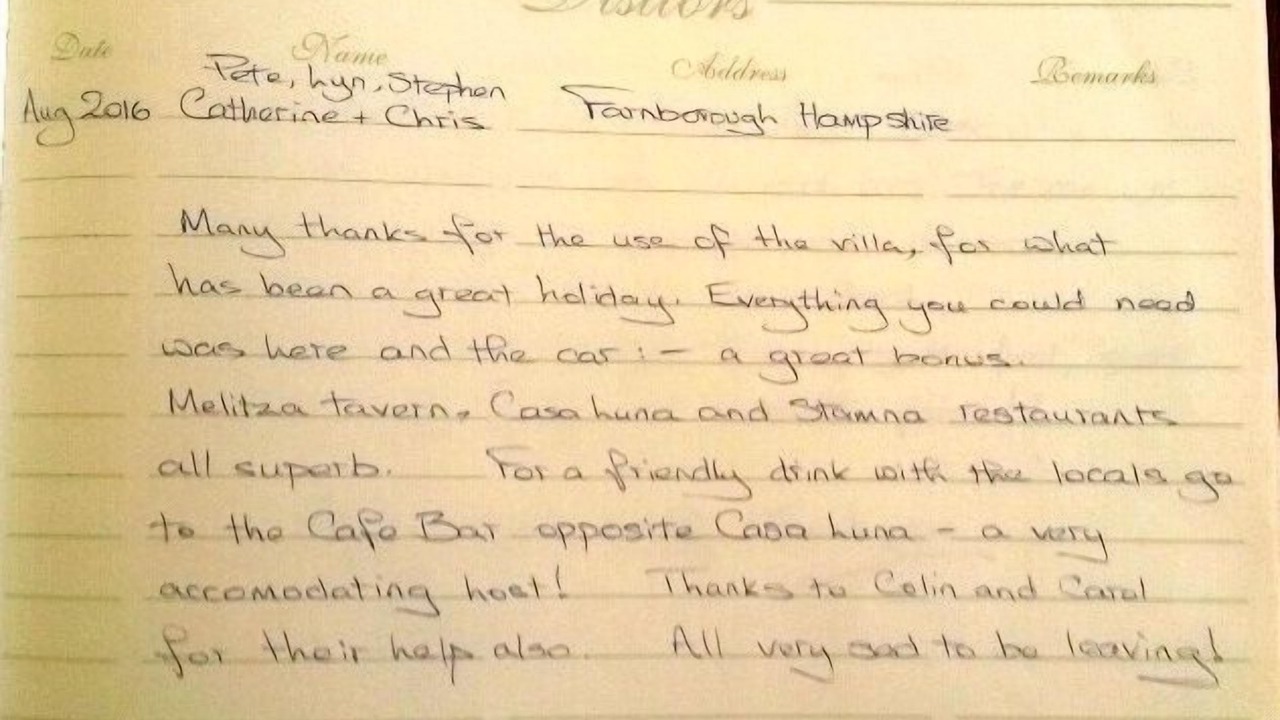 Visitors
Date Name Address Remarks
Pete, Lyn, Stephen
Aug 2016 Catherine + Chris Farnborough Hampshire
Many thanks for the use of the villa, for what
has been a great holiday. Everything you could need
was here and the car :- a great bonus.
Melitza tavern, Casa Luna and Stamna restaurants
all superb. For a friendly drink with the locals go
to the Cafe Bar opposite Casa Luna - a very
accomodating host! Thanks to Colin and Carol
for their help also. All very sad to be leaving!